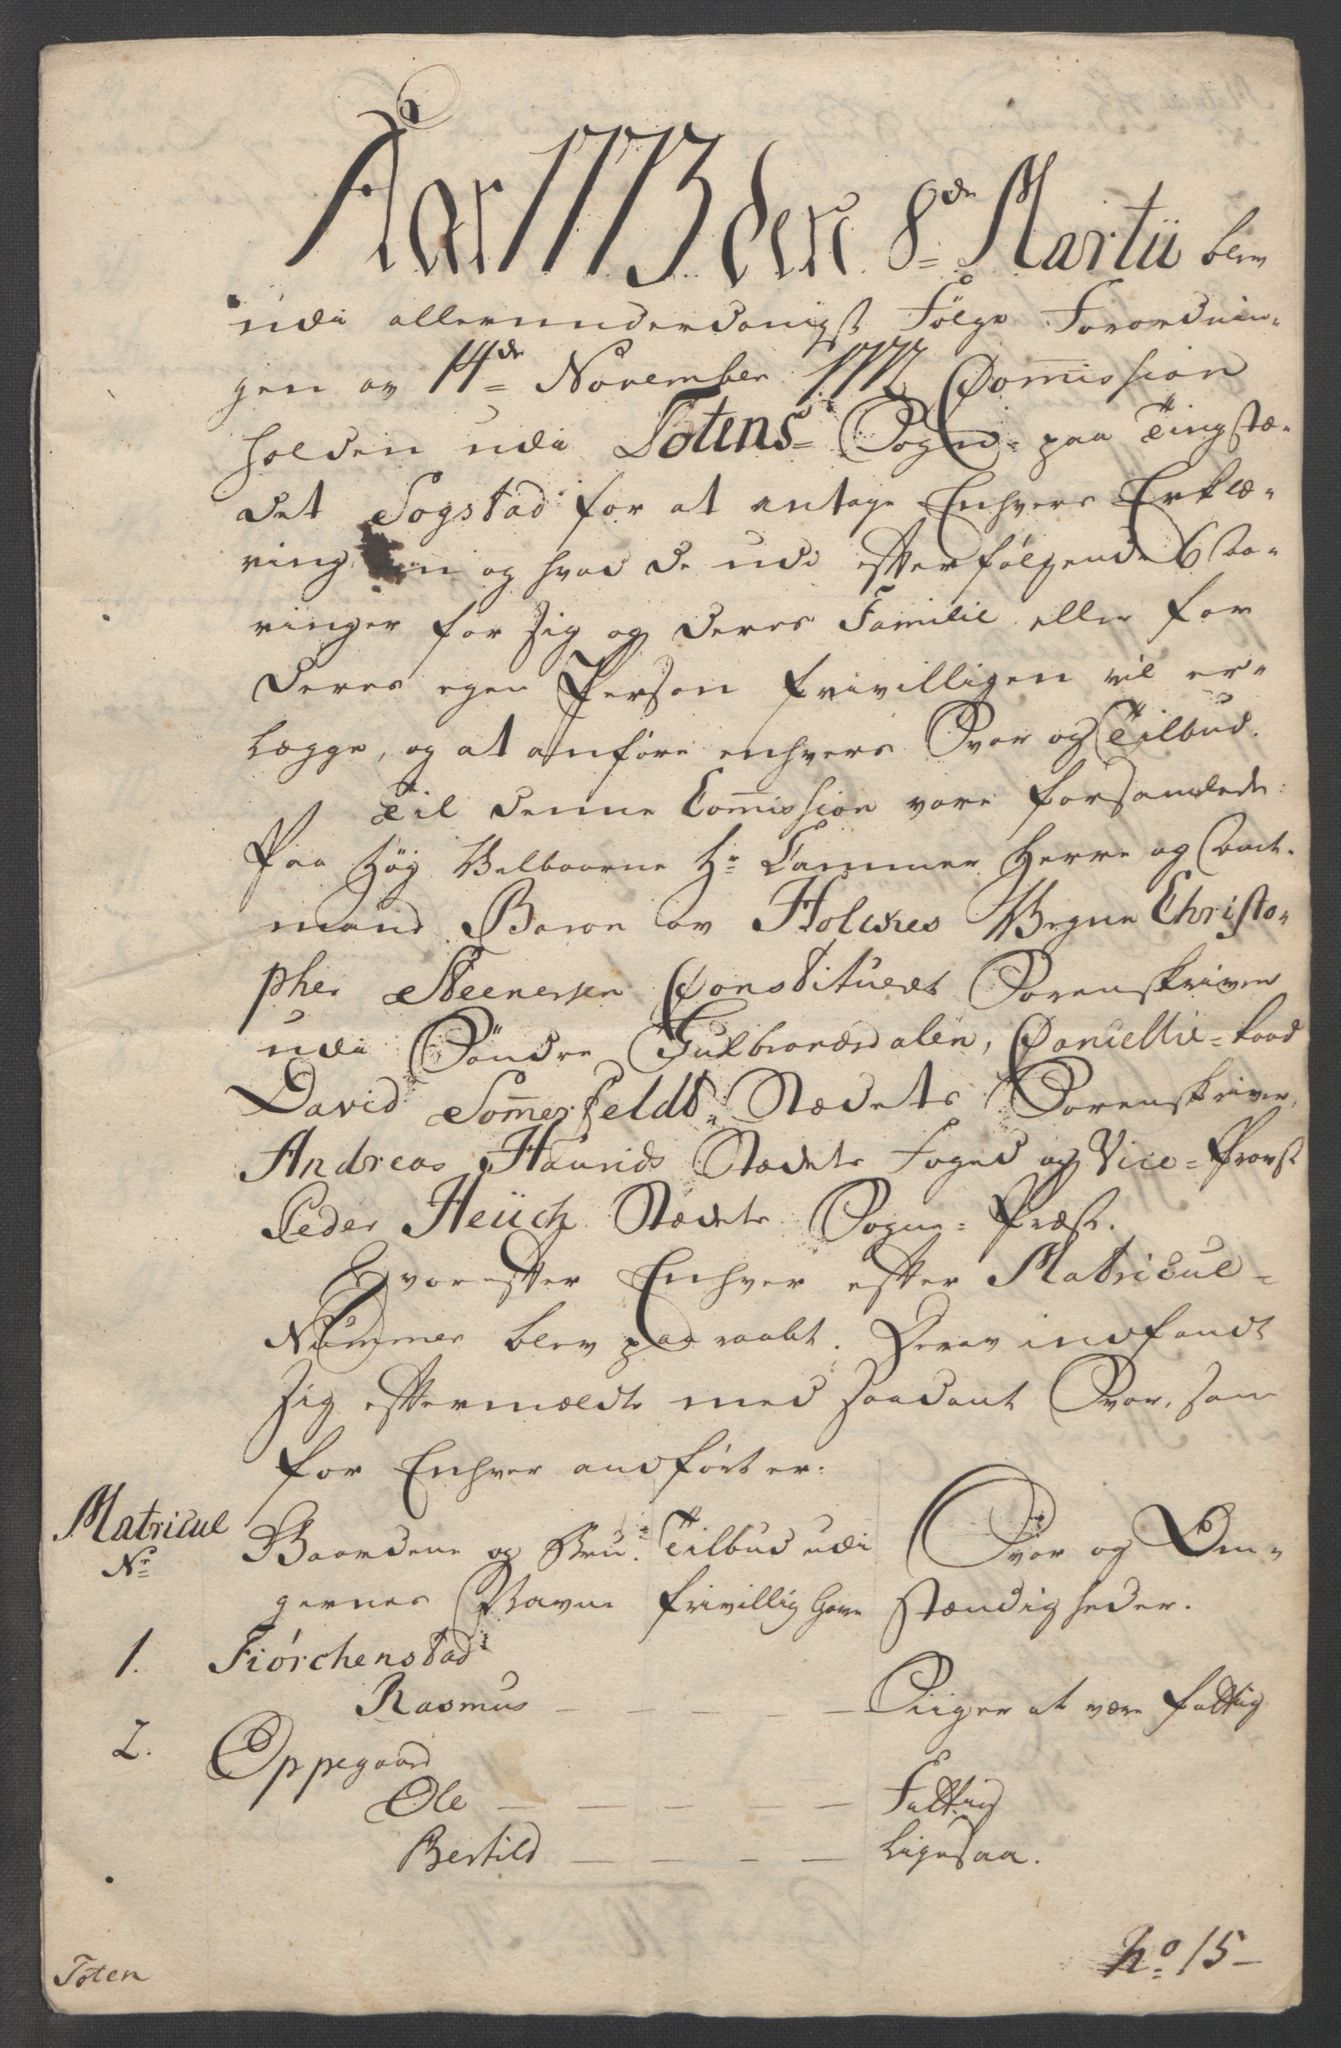 Aar 1773 den 8de Martii blev
udi allerunderdanigst Fölge Forordnin-
gen av 14de November 1772 Commission
holden udi Totens Sogn paa Tingstæ-
det Sogstad for at antage Enhvers Erklæ-
ring og hvad de udi efterfölgende 6 Aa-
ringer for sig og deres Familie eller for
deres egen Person frivilligen vil er-
lægge, og at anföre enhvers Svar og Tilbud.
Til denne Commission vare forsamlede:
Paa Höy Velbaarne Hr Cammer Herre og Amt-
mand Baron av Holckes Vegne Christo-
pher Steenersen Constitueret Sorenskriver
udi Söndre Gulbrandsdalen, Cancellie-Raad
David Sommerfeldt Stædets Sorenskriver,
Andreas Haurids Stædets Foged og Vice-Provst
Peder Heüch Stædets Sogne-Præst.
Hvorefter Enhver efter Matricul-
Nummer blev paaraabt. Derav indfandt
sig eftermældte med saadant Svar, som
for Enhver andfört er:
Matricul No Gaardene og Bru- Tilbud udi Svar og Om-
gernes Navne frivillig Gave stændigheder.
1. Fiörchenstad
Rasmus — — — — — Siiger at være fattig
2. Oppegaard
Ole — — — — — Fattig
Bertild — — — — Ligesaa.
No 15
Toten